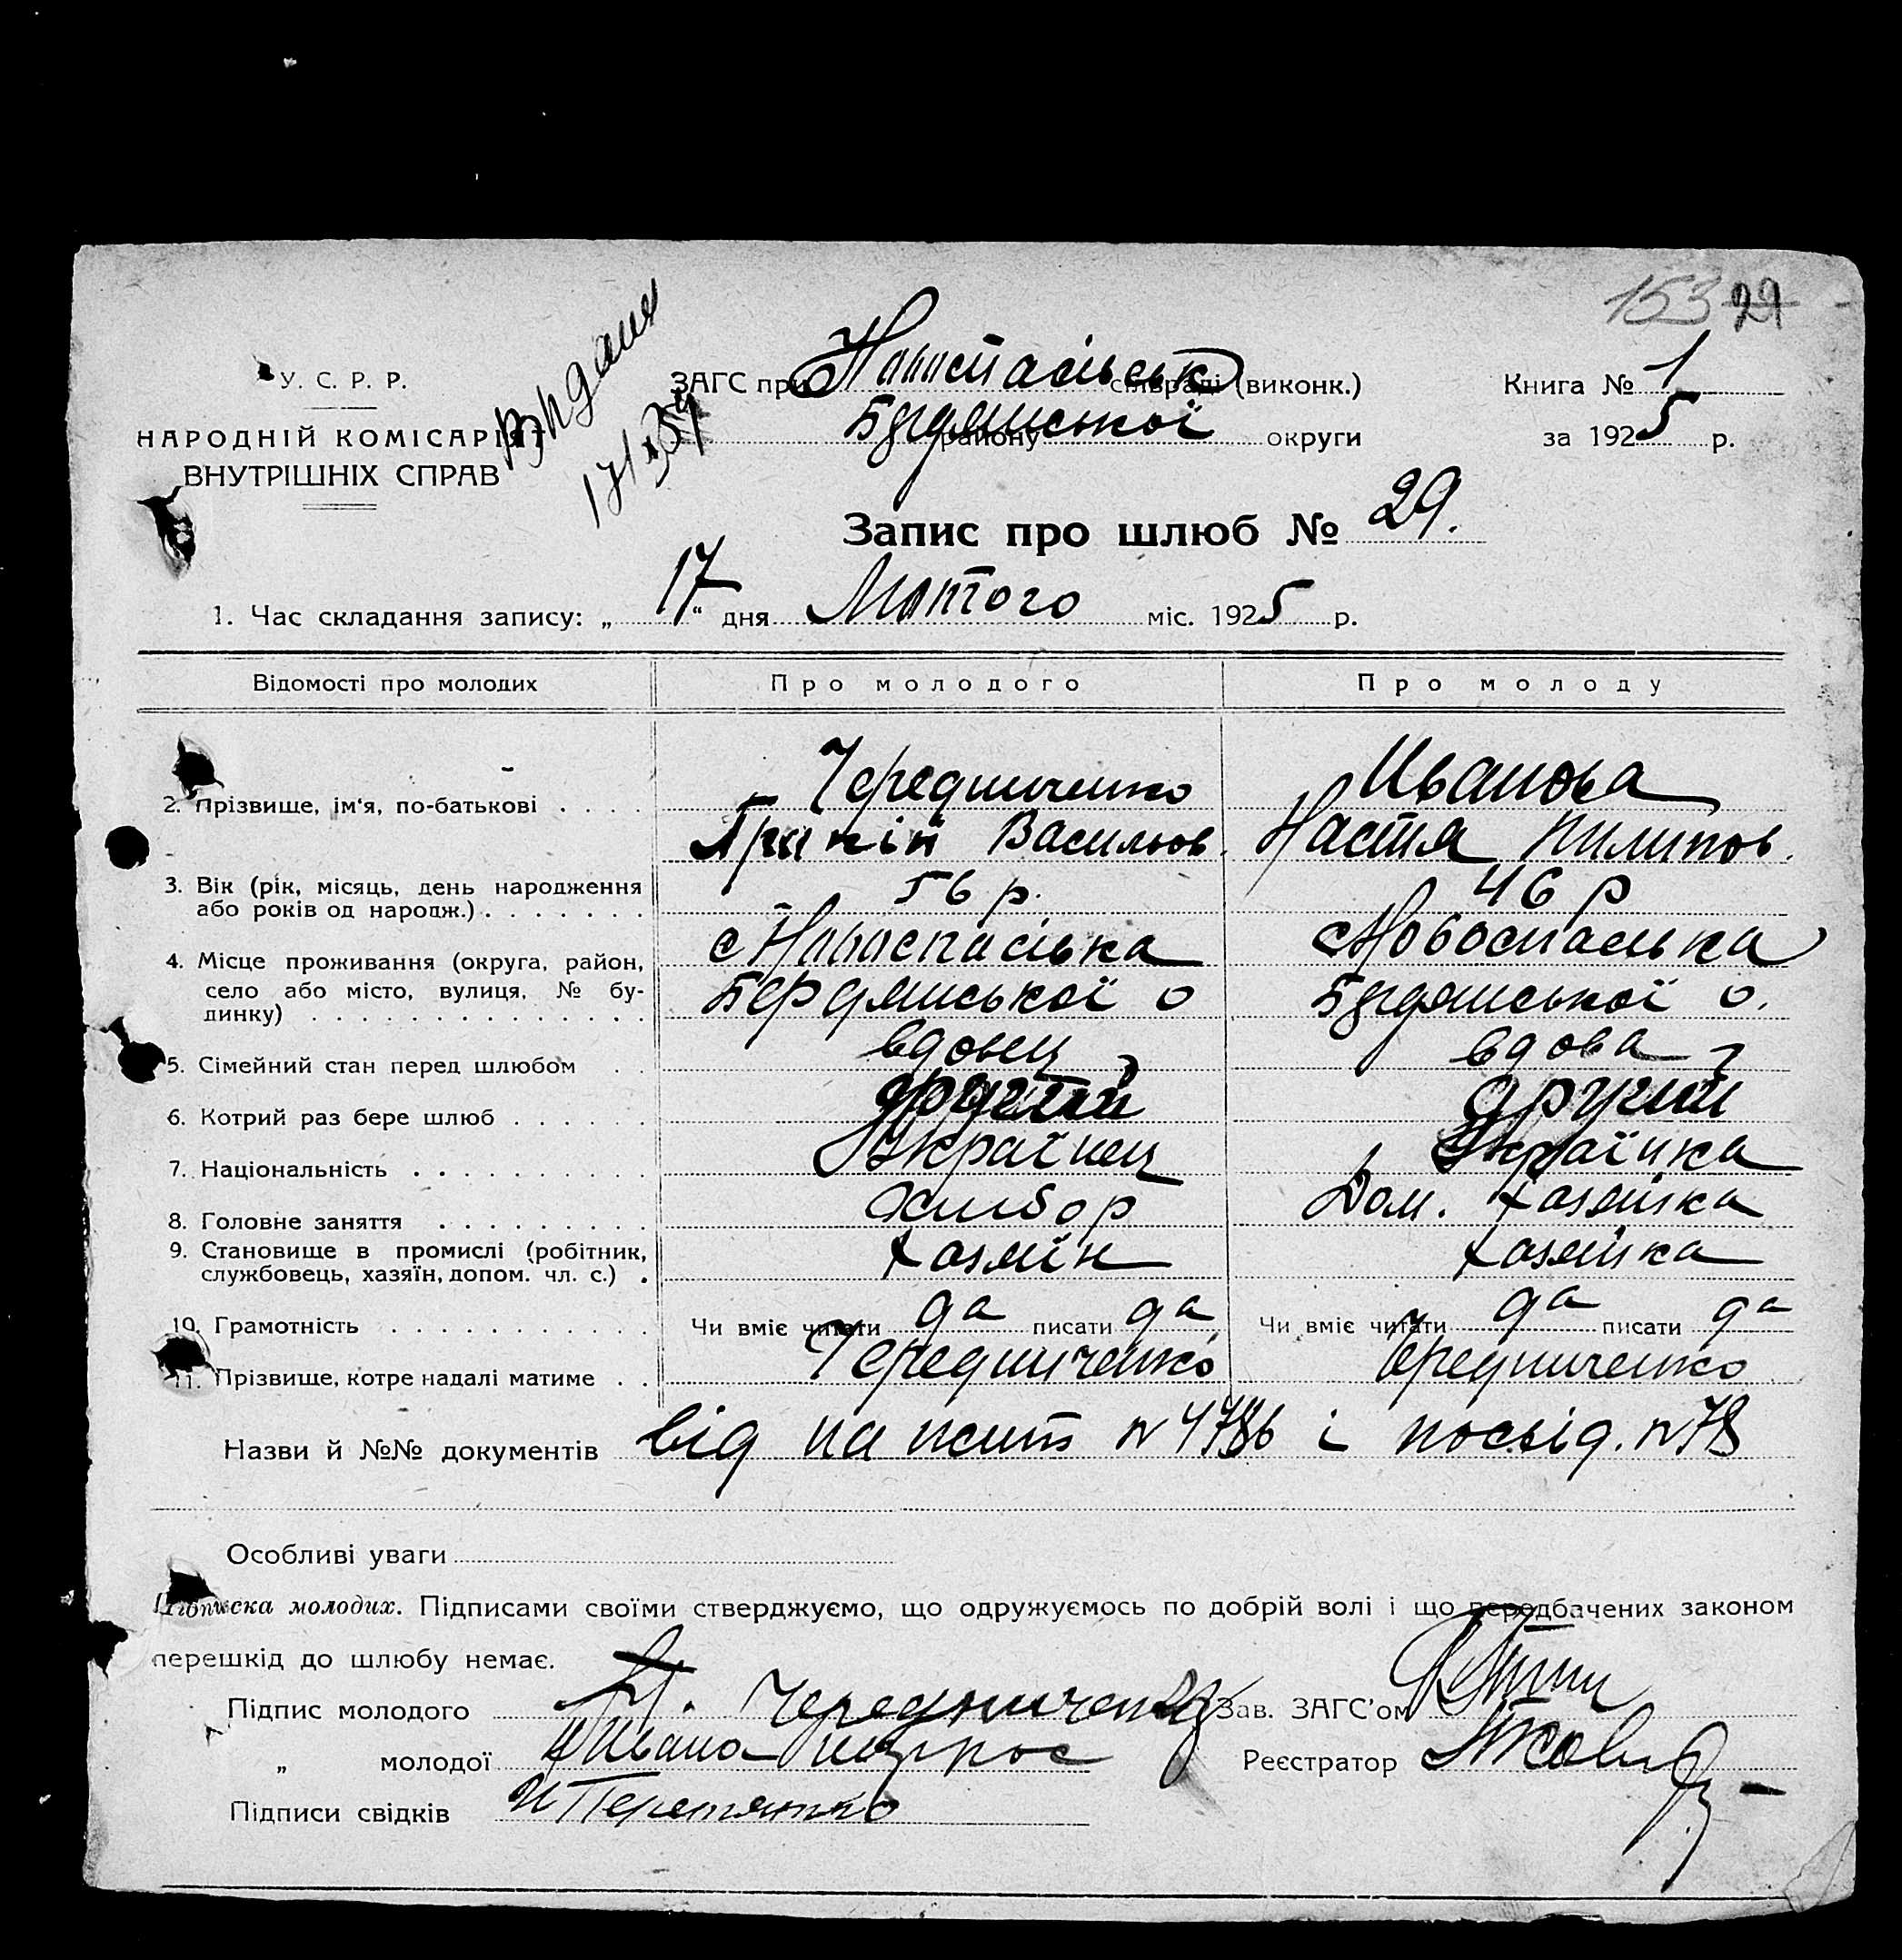 153 29
У. С. Р. Р.
НАРОДНІЙ КОМІСАРІЯТ
ВНУТРІШНІХ СПРАВ
ЗАГС при сільраді (виконк.)
району Бердянської округи
Книга № 1
за 1925 р.
Запис про шлюб № 29.
1. Час складання запису: „ 17 “ дня Лютого міс. 1925 р.
Відомості про молодих Про молодого Про молоду
2. Прізвище, ім‘я, по-батькові . . . . Чередниченко Иванова
Васильов. Настя Пилипов.
3. Вік (рік, місяць, день народження
або років од народж.) . . . . . . . 56 р. 46 р
4. Місце проживання (округа, район, с Новоспаська с Новоспаська
село або місто, вулиця, № бу-
динку) . . . . . . . . . . . . . . Бердянської о Бердянської о.
5. Сімейний стан перед шлюбом . . вдовец вдова
6. Котрий раз бере шлюб . . . . . . другий
7. Національність . . . . . . . . . Українец Українка
8. Головне заняття . . . . . . . . . Хлибор Дом. хазяйка
9. Становище в промислі (робітник,
службовець, хазяїн, допом. чл. с.) . хазяїн хазяйка
10. Грамотність . . . . . . . . . . . Чи вміє читати да писати да Чи вміє читати да писати да
11. Прізвище, котре надалі матиме . . Чередниченко Чередниченко
Назви й №№ документів від на і посвід. № 78
Особливі уваги
Підписка молодих. Підписами своїми стверджуємо, що одружуємось по добрій волі і що передбачених законом
перешкід до шлюбу немає.
Підпис молодого Чередниченко Зав. ЗАГС’ом
„ молодої Реєстратор
Підписи свідків